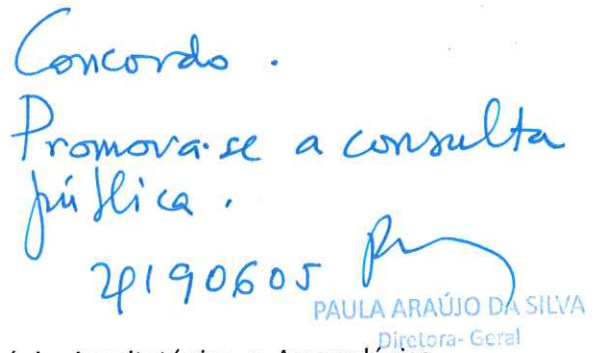 Concordo.
Promova-se a consulta
pública.
20190605
PAULA ARAÚJO DA SILVA
Diretora-Geral